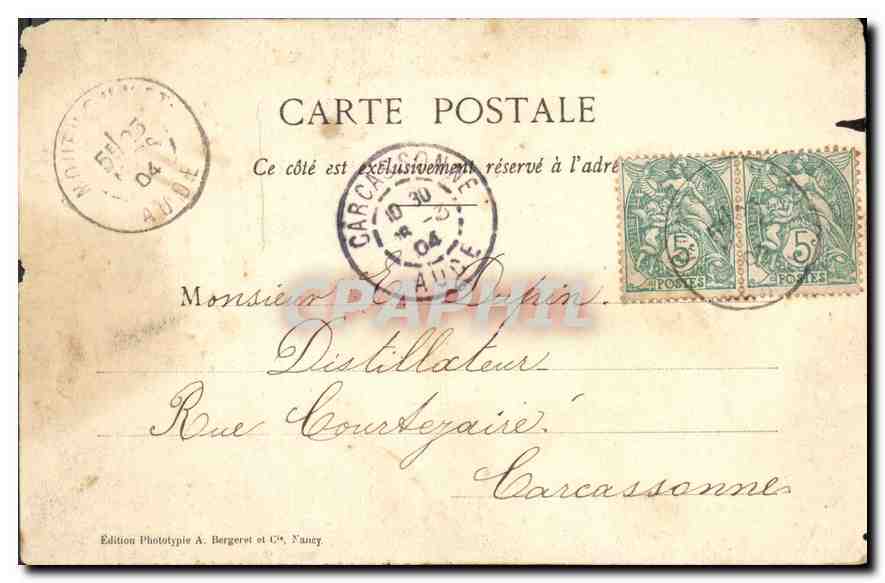 CARTE POSTALE
Ce côté est exclusivement réservé à l'adre
CARCASSONNE
10 30
-3
04
AUDE
04
AUDE
5c
POSTES
5c
POSTES
Monsieur E. Dupin.
CPAPHIL
Distillateur
Rue Courtejaire.
Carcassonne
Édition Phototypie A. Bergeret et Cie, Nancy.